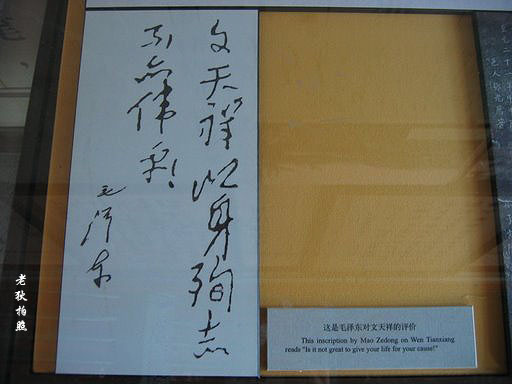 文天祥以身殉志
不亦伟乎！
毛泽东
这是毛泽东对文天祥的评价
This inscription by Mao Zedong on Wen Tianxiang
reads "Is it not great to give your life for your cause!"
老狄拍照